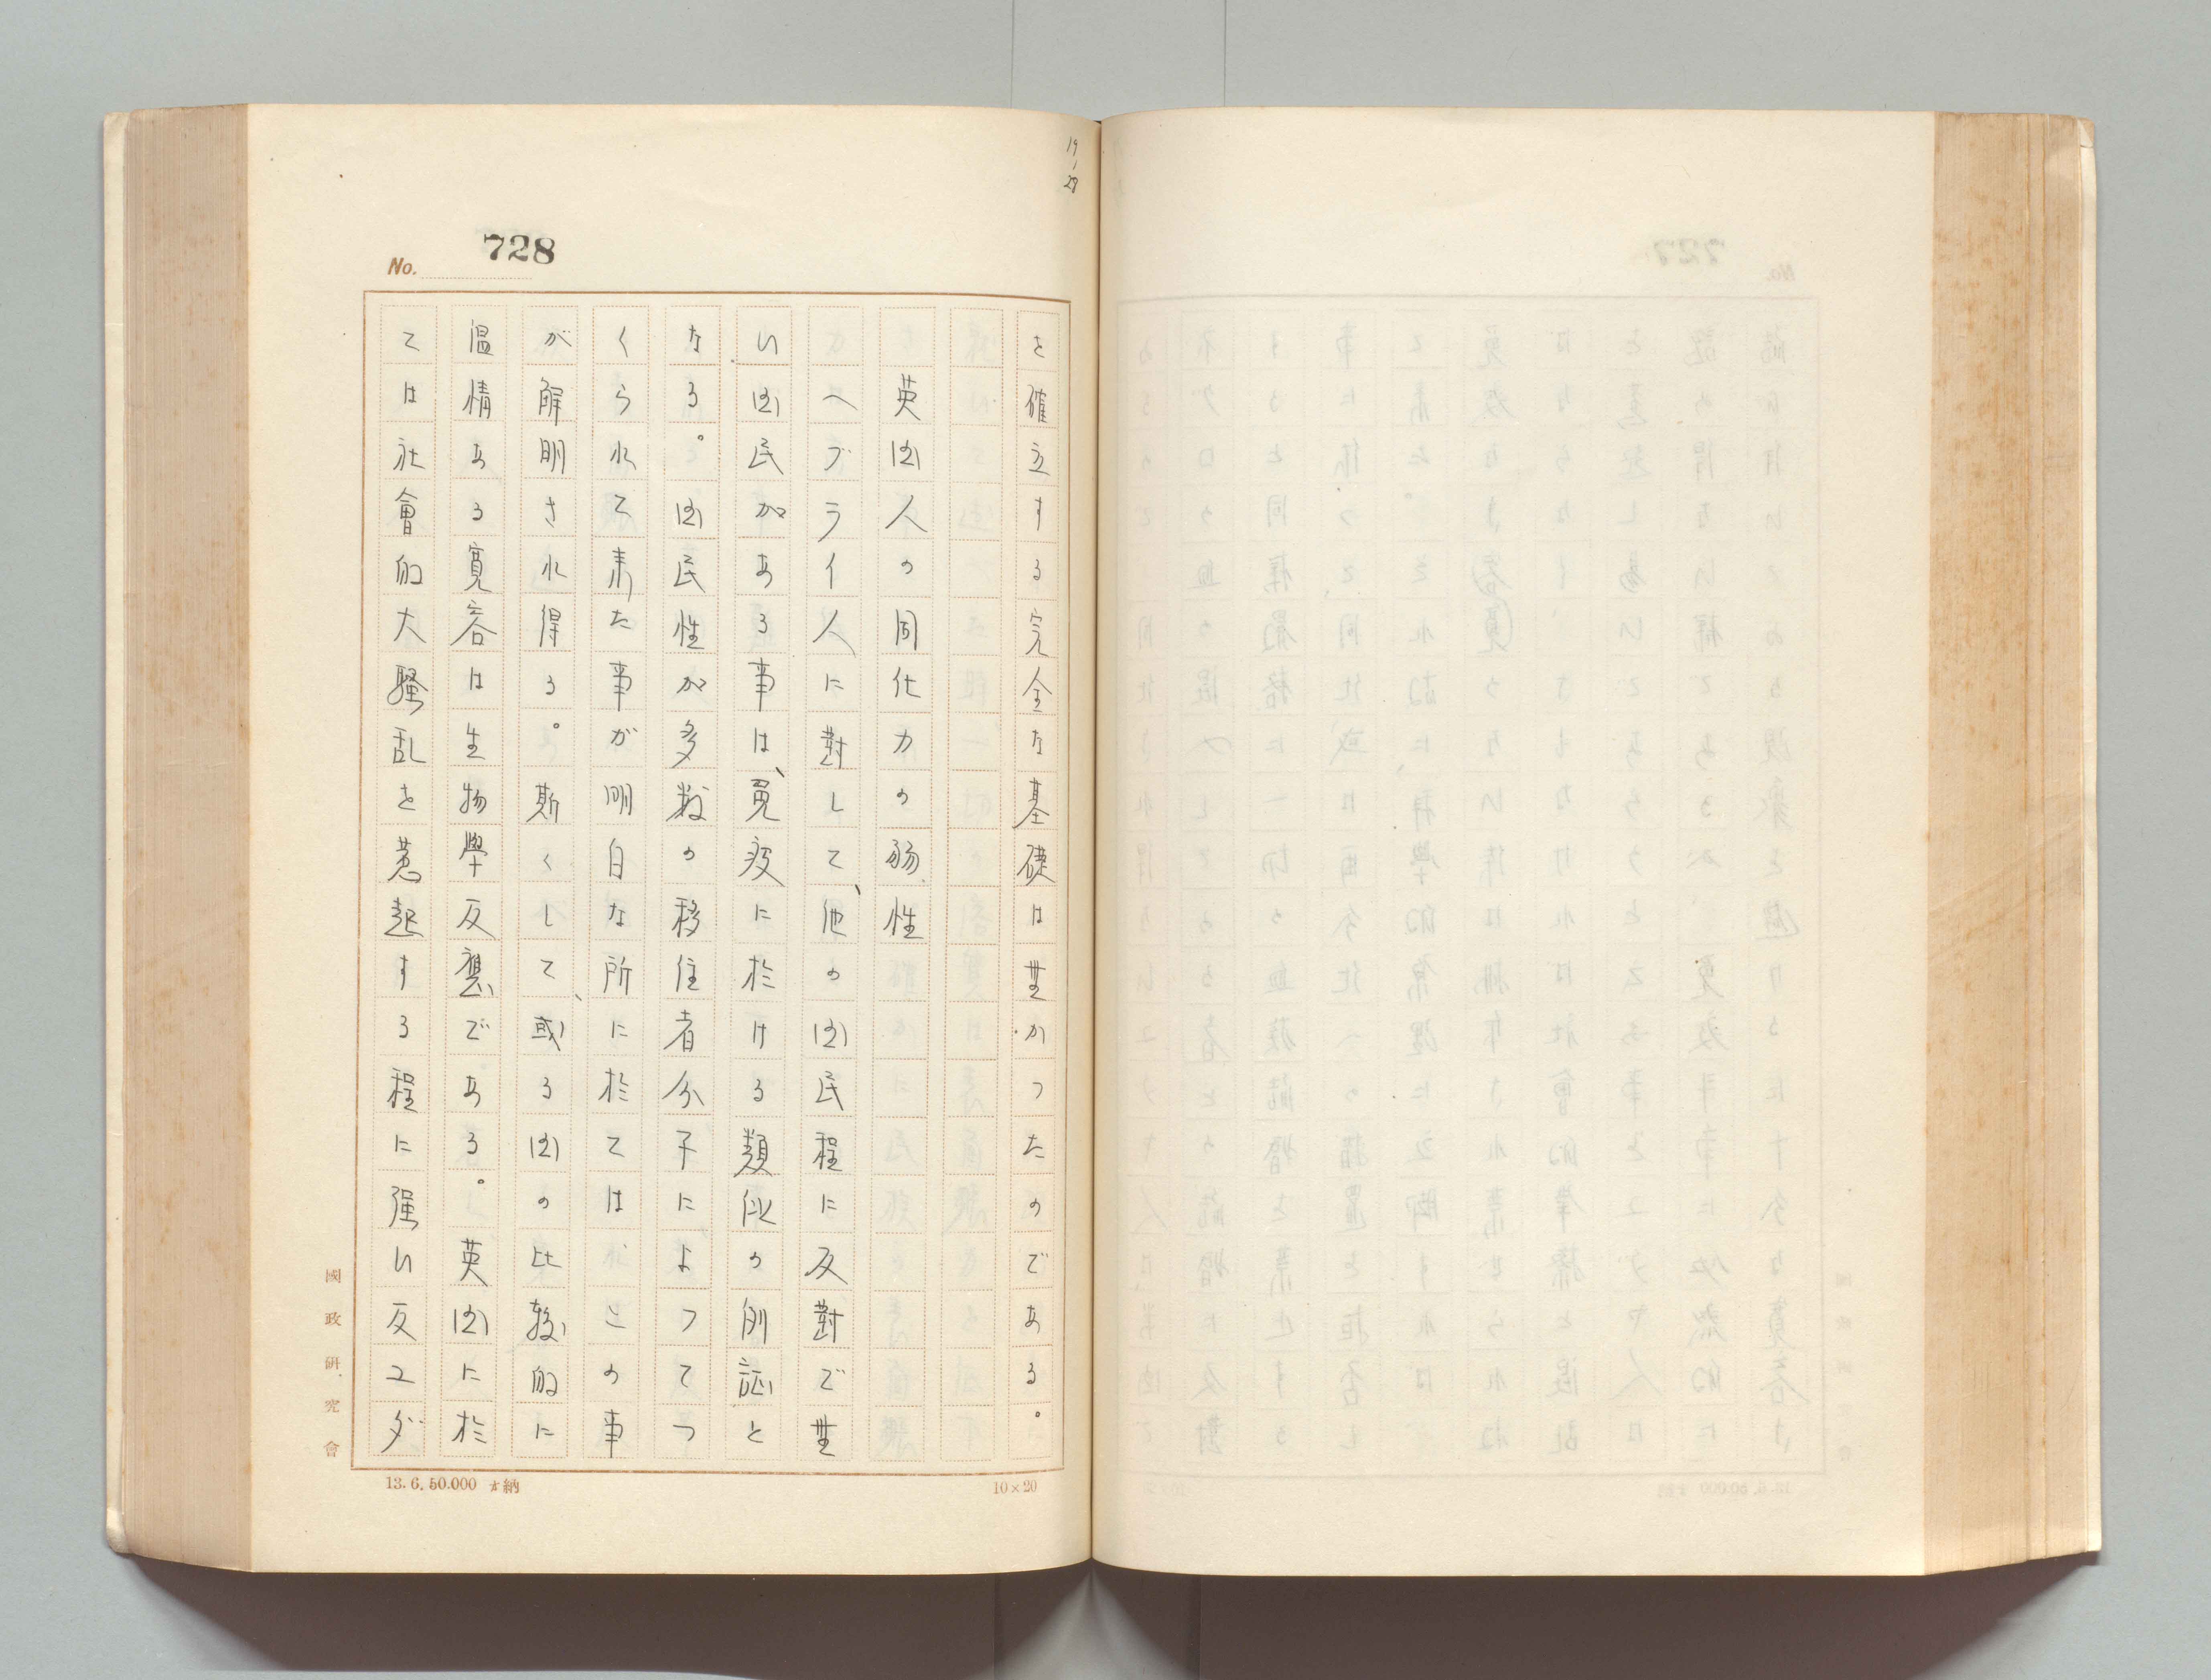 19
28
No. 728
を確立する完全な基礎は無かつたのである。
英国人の同化力の弱性
ヘブライ人に対して、他の国民程に反対で無
い国民がある事は、免疫に於ける類似の例証と
なる。国民性が多数の移住者分子によつてつ
くられて来た事が明白な所に於てはこの事
が解明され得る。斯くして、或る国の比較的に
温情ある寛容は生物学反応である。英国に於
ては社会的大騒乱を惹起する程に強い反ユダ
國政研究會
13.6.50.000 才納
10×20